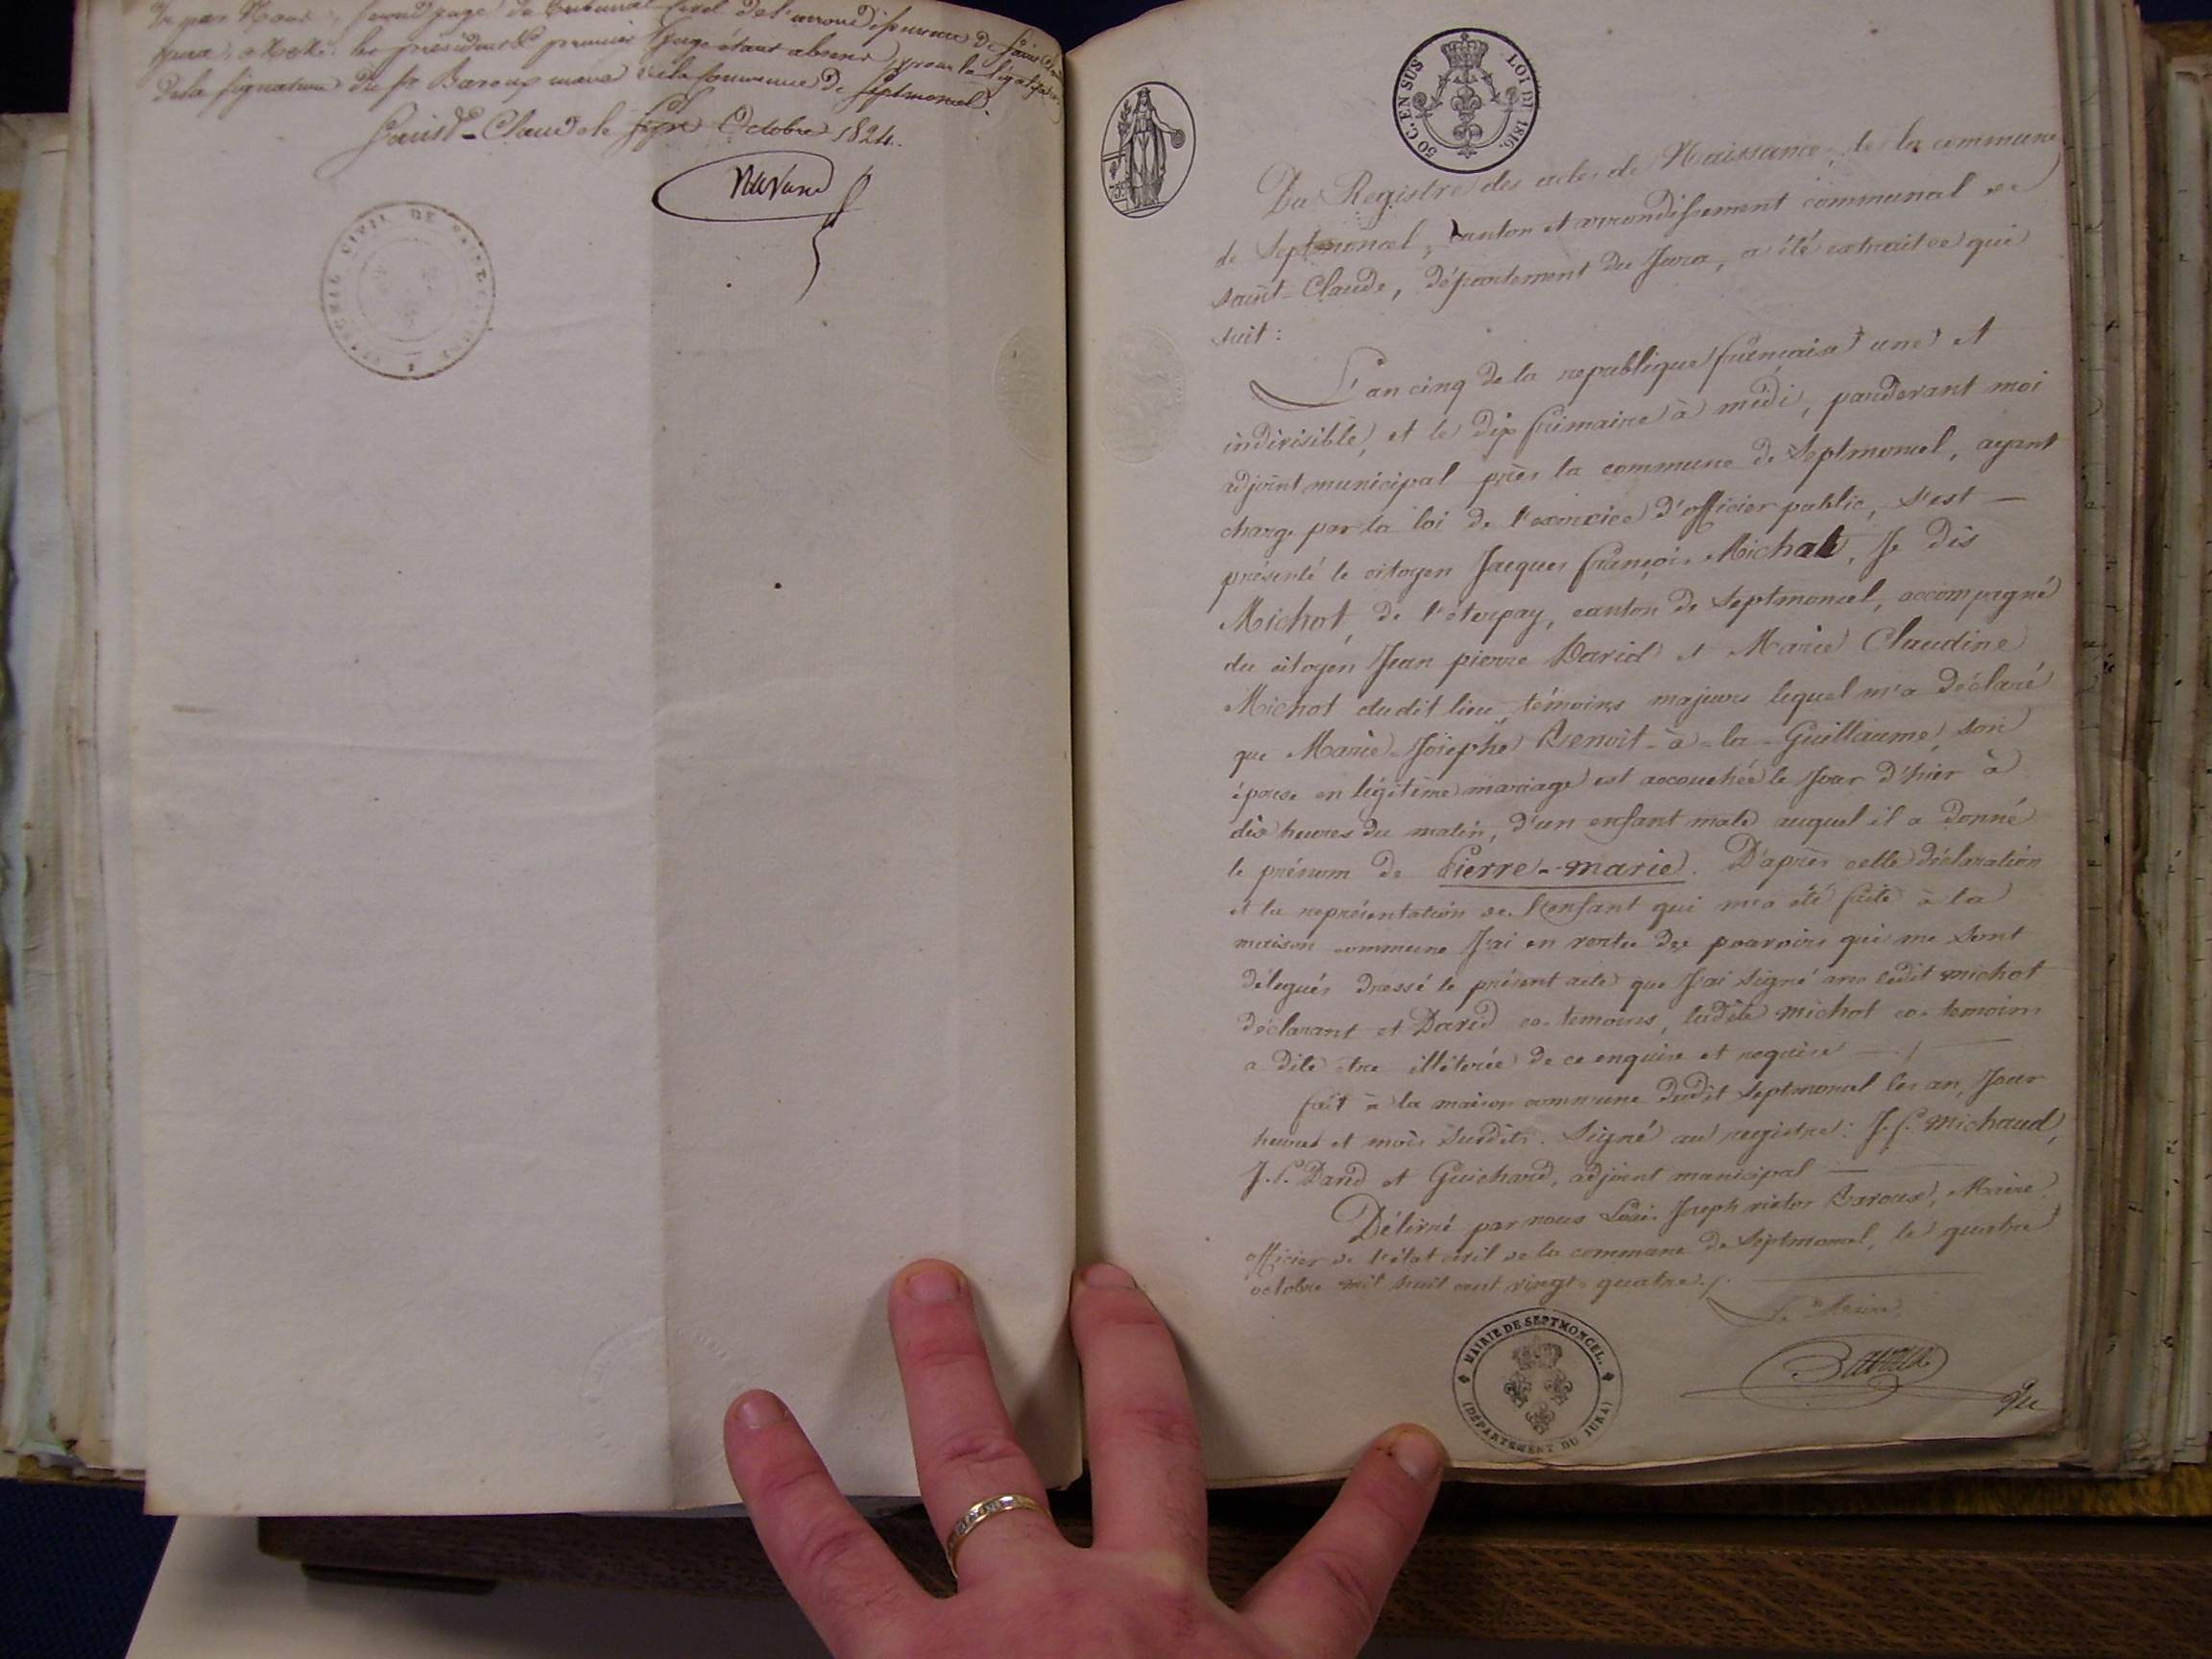 Vu par Nous, second juge du tribunal civil de l'arrondissement de Saint Claude
Jura, MM. les président & premier juge étant absens, pour la légalisation
de la signature du Sr Baroux maire de la commune de Septmoncel.
Saint-Claude le sept Octobre 1824.
TRIBUNAL CIVIL DE SAINT CLAUDE
50 C. EN SUS LOI DE 1816.
Du Registre des actes de Naissance, de la commune
de Septmoncel, Canton et arrondissement communal de
saint-Claude, département du Jura, a été extrait ce qui
suit :
L'an cinq de la republique française une et
indivisible, et le dix frimaire à midi, pardevant moi
adjoint municipal près la commune de Septmoncel, ayant
charge par la loi de l'exercice d'officier public, s'est —
présenté le citoyen Jacques françois Michat, Je dis
Michot, de l'étarpay, canton de Septmoncel, accompagné
du citoyen Jean pierre David et Marie Claudine
Michot dudit lieu, témoins majeurs lequel m'a déclaré
que Marie-Josephe Benoit-à-la-Guillaume, son
épouse en légitime mariage est accouchée le Jour d'hier à
dix heures du matin, d'un enfant male auquel il a donné
le prénom de Pierre-marie. D'après cette déclaration
et la représentation de l'enfant qui m'a été faite à la
maison commune J'ai en vertu des pouvoirs qui me sont
délégués dressé le présent acte que J'ai signé avec ledit michot
déclarant et David co-temoins, ladite michot co-temoin
a dite etre illéterée de ce enquise et requise —./.—
fait à la maison commune dudit Septmoncel les an, Jour
heures et mois susdits. Signé au registre : J. f. michaud,
J. P. David et Guichard, adjoint municipal —
Délivré par nous Louis Joseph victor Baroux, Maire
officier de l'état civil de la commune de Septmoncel, le quatre
octobre mil huit cent vingt-quatre./.
Le Maire
Baroux
Vu
MAIRIE DE SEPTMONCEL.
(DÉPARTEMENT DU JURA)